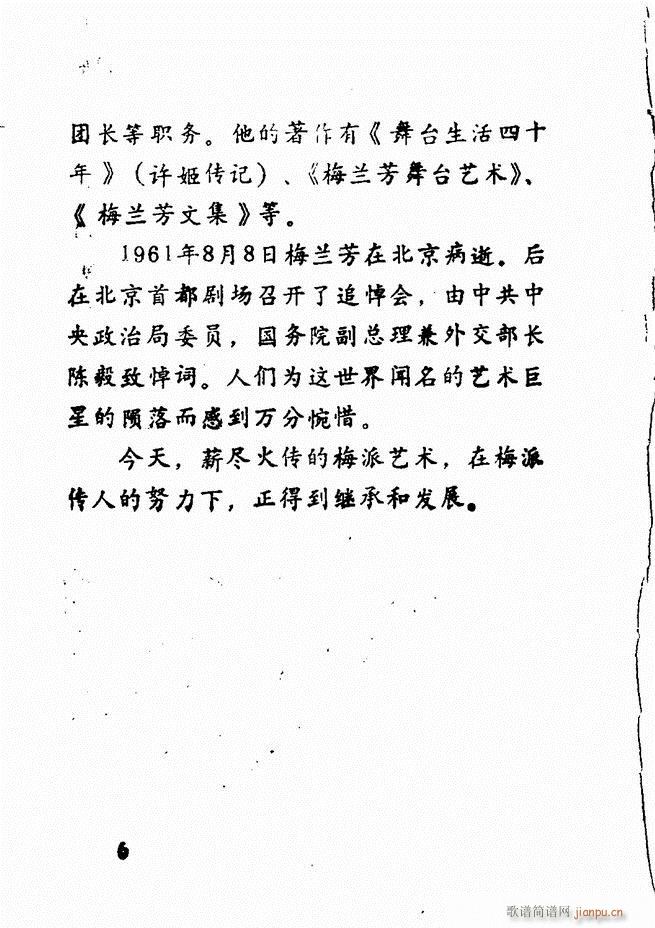 团长等职务。他的著作有《舞台生活四十
年》（许姬传记）、《梅兰芳舞台艺术》、
《梅兰芳文集》等。
1961年8月8日梅兰芳在北京病逝。后
在北京首都剧场召开了追悼会，由中共中
央政治局委员，国务院副总理兼外交部长
陈毅致悼词。人们为这世界闻名的艺术巨
星的陨落而感到万分惋惜。
今天，薪尽火传的梅派艺术，在梅派
传人的努力下，正得到继承和发展。
6
歌谱简谱网 jianpu.cn